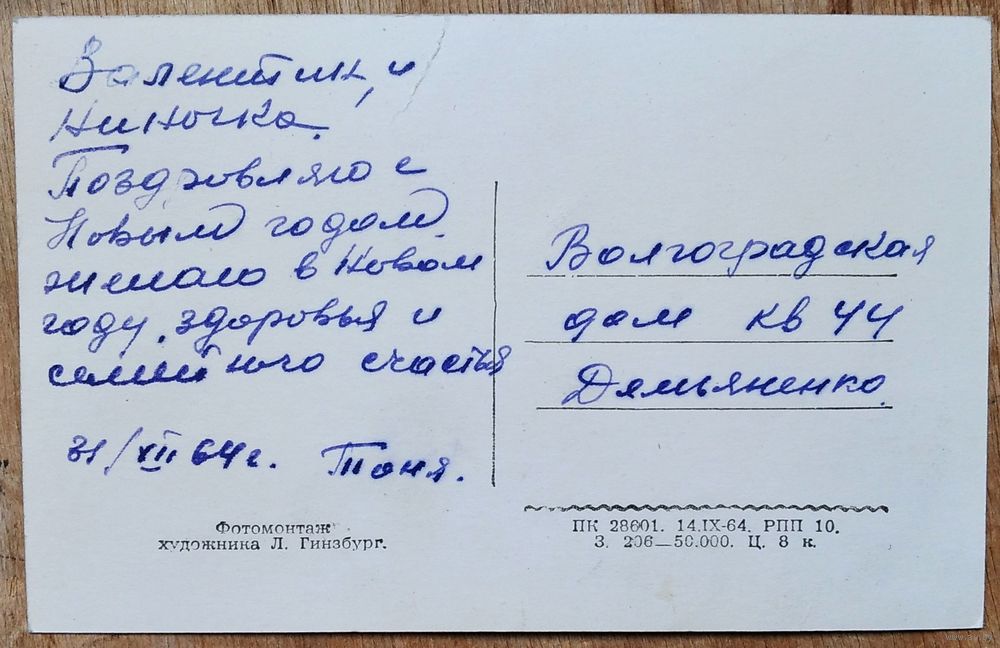 Валентин, и
Ниночка.
Поздровляю с
Новым годом,
желаю в Новом
году, здоровья и
семейного счастья
31/XII 64 г. Таня.
Фотомонтаж
художника Л. Гинзбург.
Волгоградская
дом кв 44
Демьяненко.
ПК 28601. 14.IX-64. РПП 10.
З. 206—50.000. Ц. 8 к.